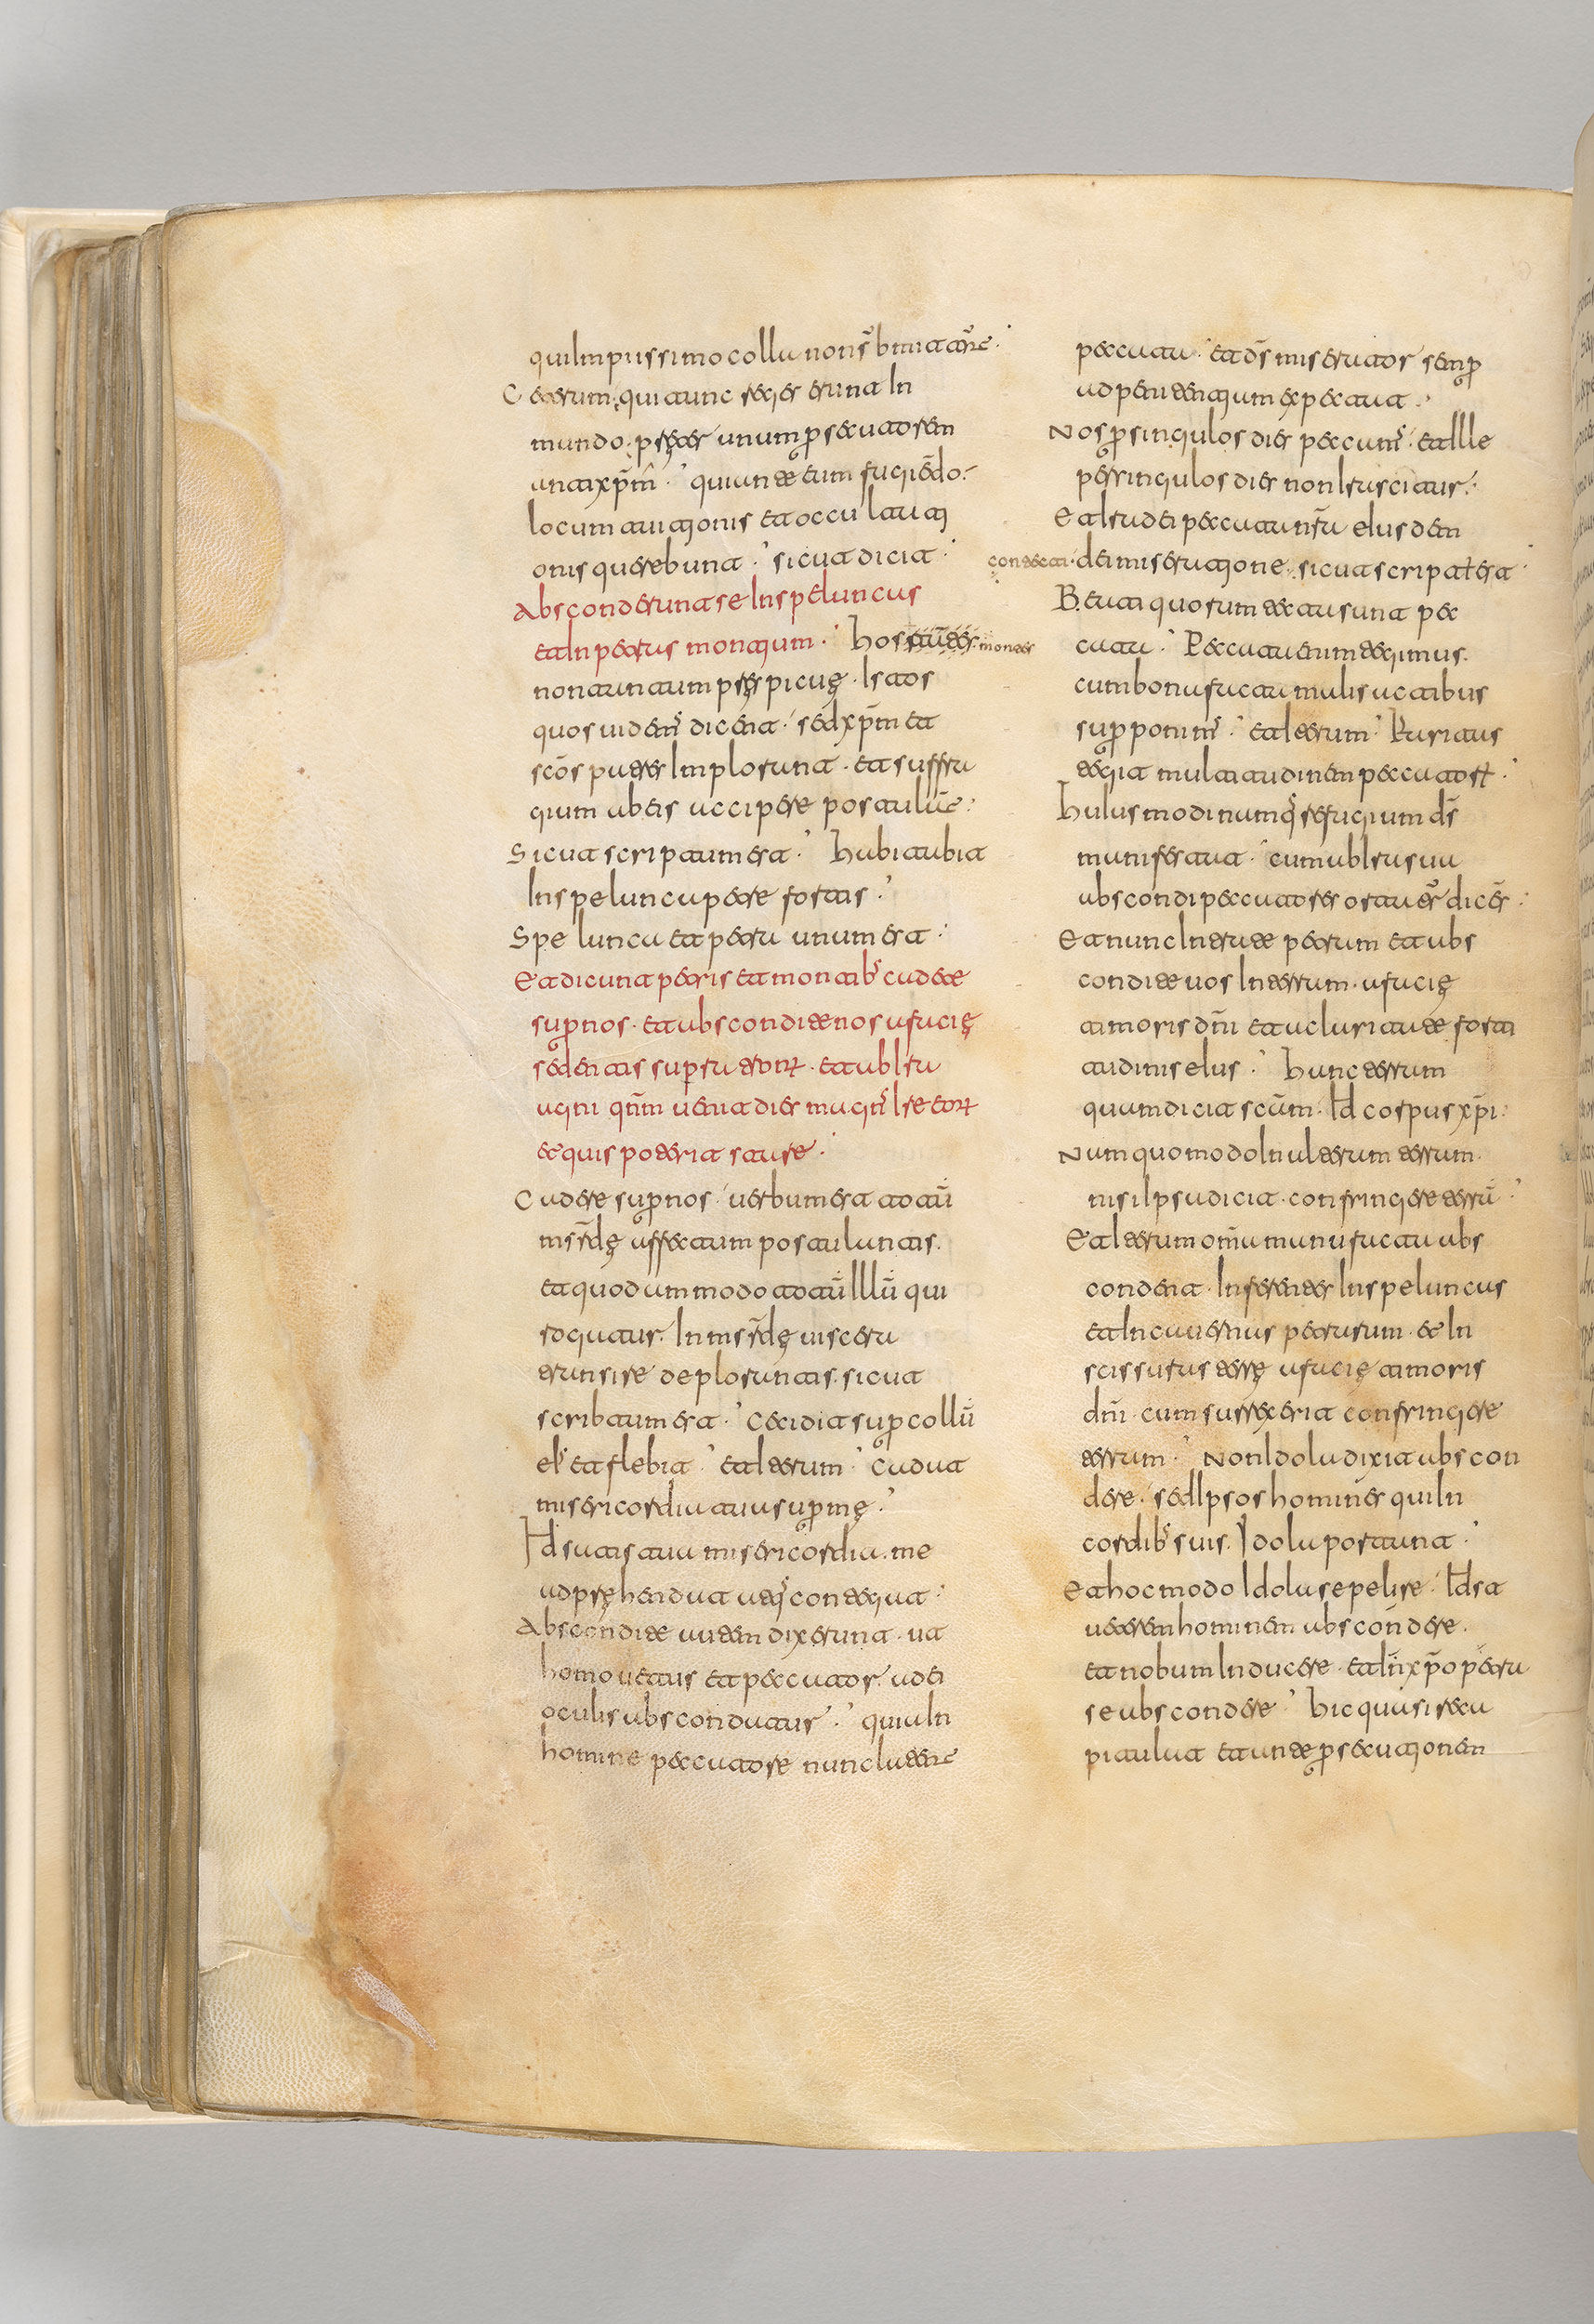 qui Impiissimo colla non s̄bmittāt.
Ceterum qui tunc reges erunt In
mundo. pręter unum persecutorem
antixp̄m. qui ante eum fugiēdo.
locum tuitionis et occu latati
onis querebunt. sicut dicit.
Absconderunt se In speluncas
et In petras montium. hos autem montes
non tantum pręspicuę. Istos
quos uidem̄s dicent. sed xp̄m et
scōs patres Implorant. et suffra
gium ab eis accipere postulant.
Sicut scriptum est. habitabit
In spelunca petre fortis.
Spelunca et petra unum est.
Et dicunt petris et montibs cadete
sup nos. et abscondite nos a facię
sedentis super tronum. et ab Ira
agni qn̄m uenit dies magns Ire eorum
et quis poterit stare.
Cadere sup nos. uerbum est totū
msrdę affectum postulantis.
et quodammodo totū Illū qui
rogatur. In msrdę uiscera
transire deplorantis. sicut
scribtum est. Cecidit sup collū
eis et flebit. et Iterum. Cadat
misericordia tua sup mę.
Id satis tua misericordia. me
adpręhendat atqs contegat.
Abscondite autem dixerunt. ut
homo uetus et peccator. a dei
oculis abscondatur. quia In
homine peccatore nunc latente
peccata. et ds̄ miserator semp
ad penitentium expectat.
Nos p singulos dies peccams. et Ille
per singulos dies non Irascitur.
Et Ira dei peccata nr̄a eius dem
contecti. dei miseratione. sicut scriptum est.
Beati quorum tecta sunt pec
cata. Peccata enim tegimus.
cum bona facta malis actibus
supponims. et Iterum. Karitas
tegit multitudinem peccatorum.
huius modi namqs refugium ds̄
manifestat. cum ab Ira sua
abscondi peccatores ortatur dicens.
Et nunc Intrate petram et abs
condite uos In terram. a facię
timoris dn̄i et a claritate forti
tudinis eius. hunc terram
quam dicit scām. Id corpus xp̄i.
Num quomodo In alteram terram.
nisi Ipsa dicit. confringere terrā.
Et Iterum omīa manu facta abs
condent. Inferentes In speluncas
et In cauernas petrarum. et In
scissuras terrę a facię timoris
dn̄i. cum surrexerit confringere
terram. Non Idola dixit abscon
dere. sed Ipsos homines qui In
cordibs suis. Idola portant.
Et hoc modo Idola sepelire. Id st
ueterem hominem abscondere.
et nobum Inducere. et In xp̄o petra
se abscondere. hic quasi reca
pitulat et ante psecutionem